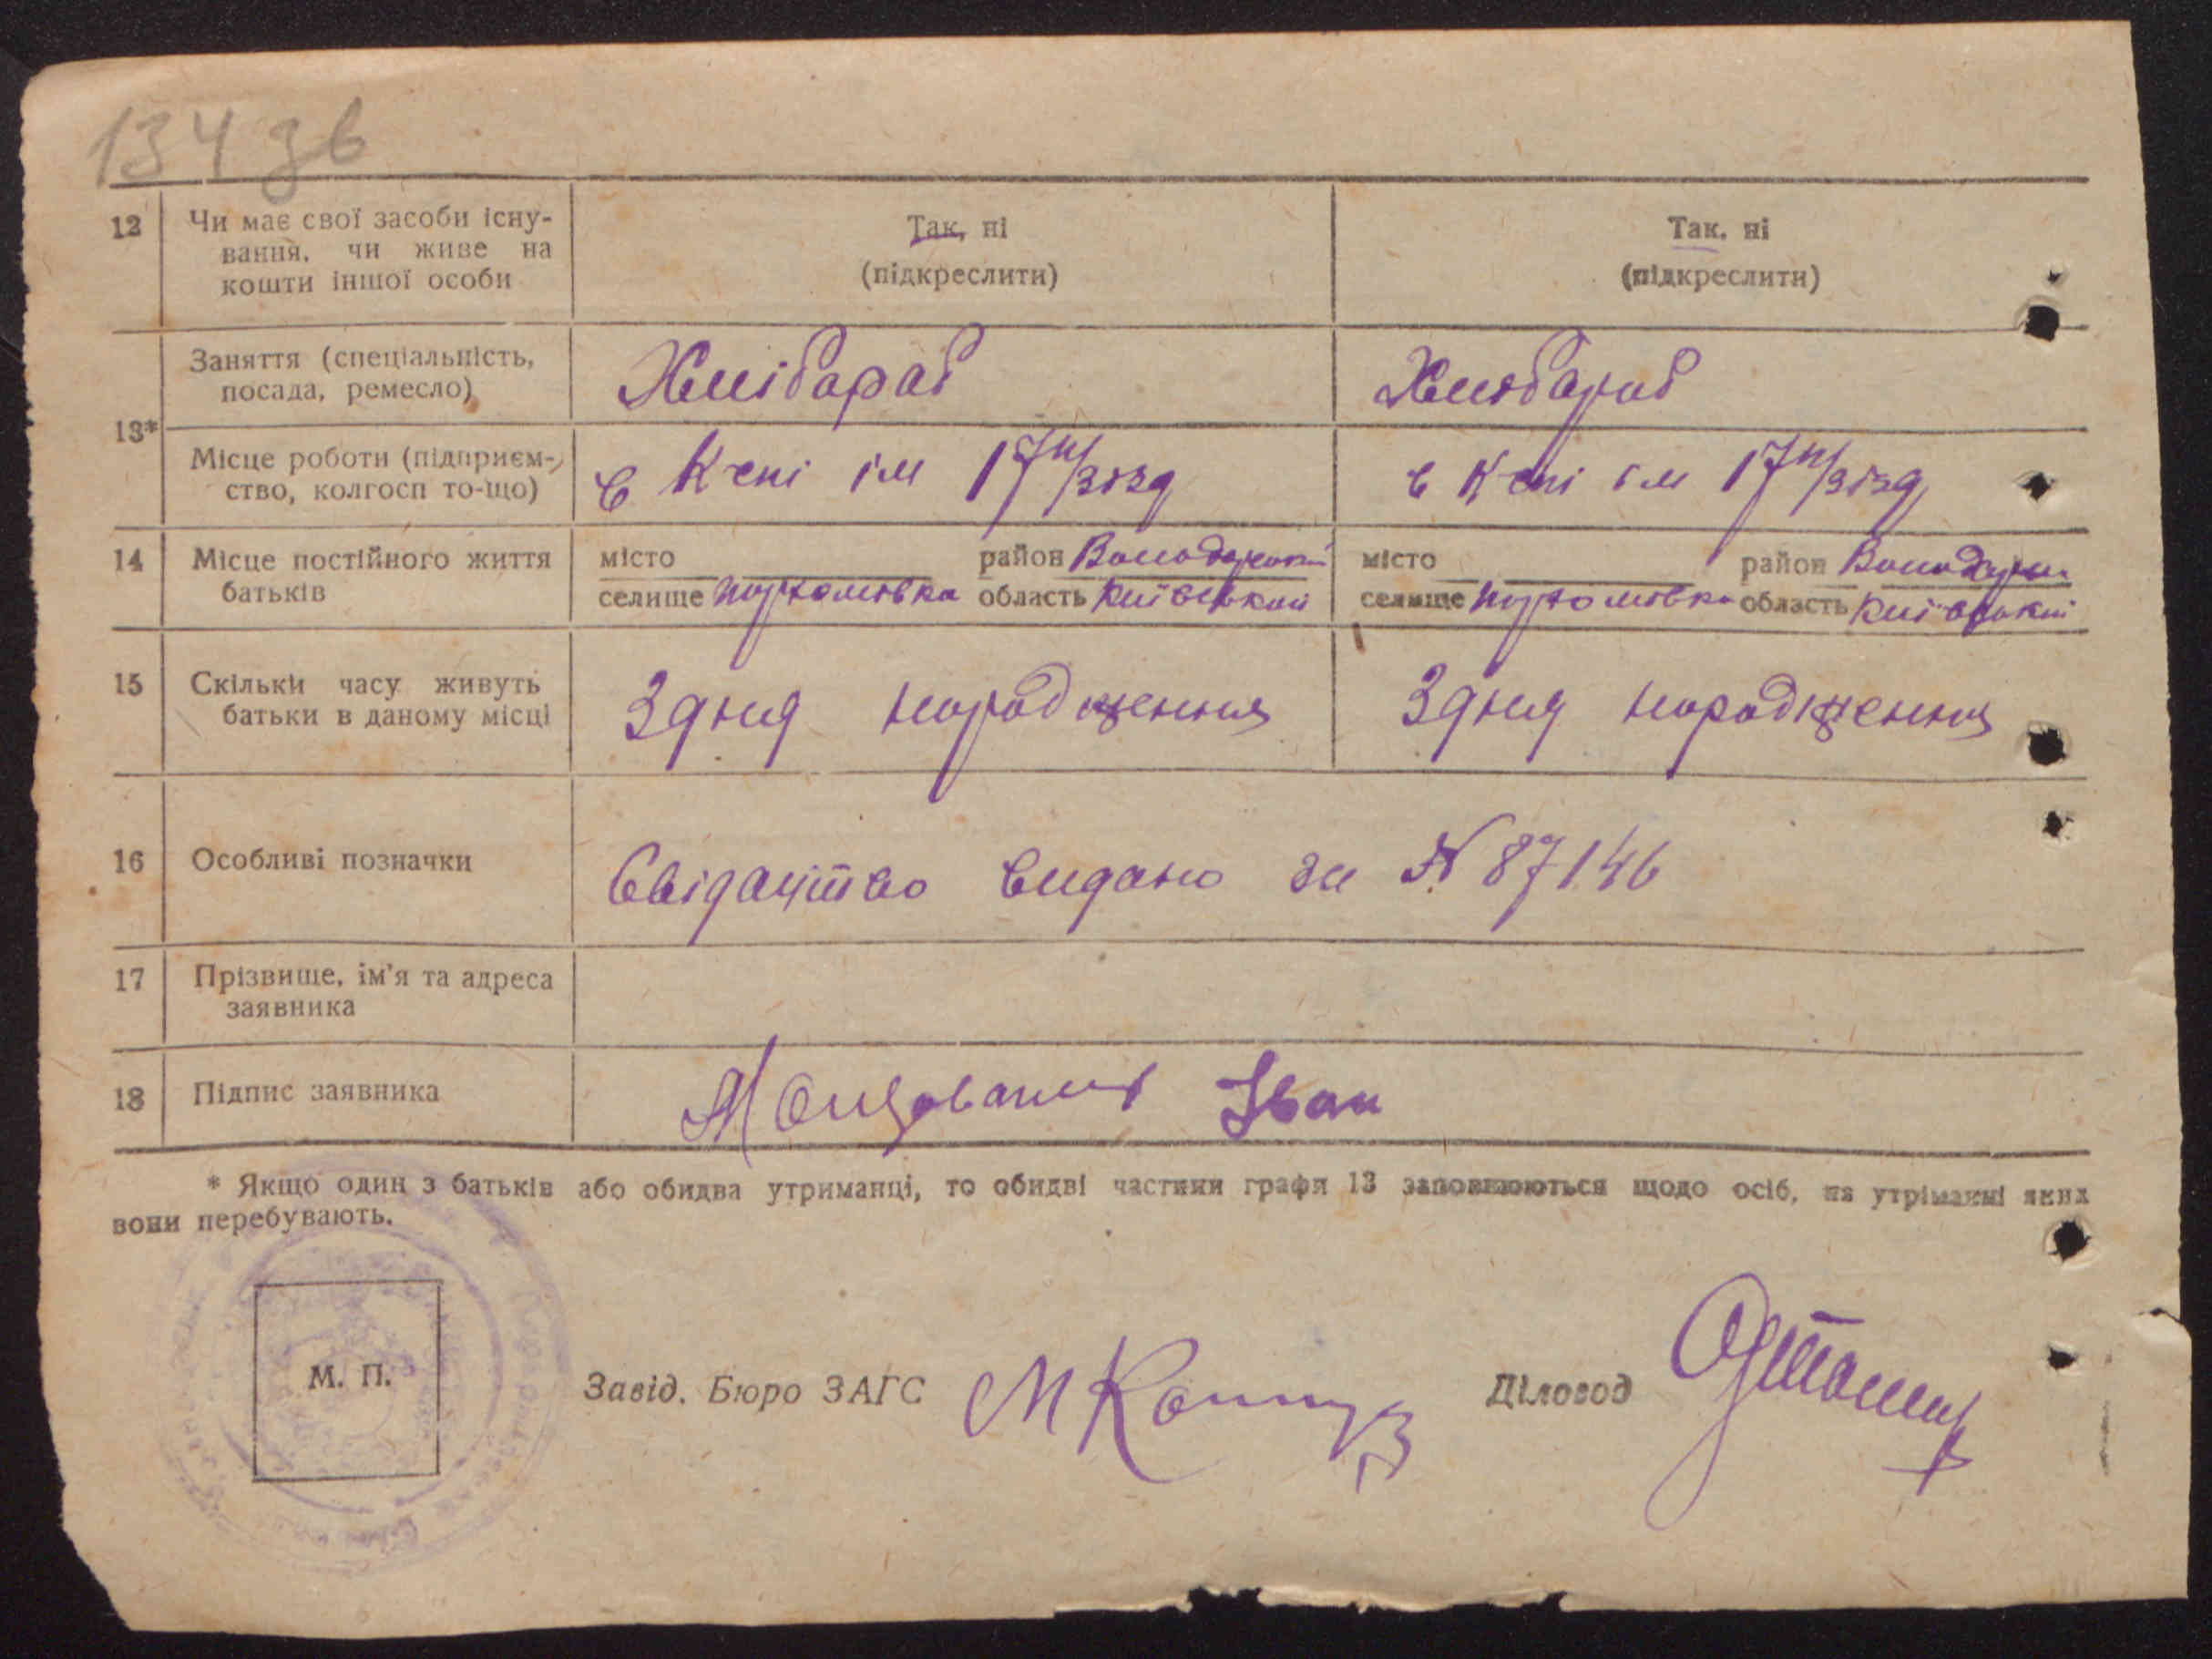 134 зв
12 Чи має свої засоби існу- Так, ні Так. ні
вання, чи живе на
кошти іншої особи (підкреслити) (підкреслити)
13* Заняття (спеціальність, Хлібараб Хлібараб
посада, ремесло)
Місце роботи (підприєм- в К-спі ім 17 п/зізд в К-спі ім 17 п/зізд
ство, колгосп то-що)
14 Місце постійного життя місто район Володарський місто район
батьків селище область Київський селище область Київський
15 Скільки часу живуть З дня народщення З дня народщення
батьки в даному місці
16 Особливі позначки Свідацтво видано за № 87146
17 Прізвище, ім'я та адреса
заявника
18 Підпис заявника Іван
* Якщо один з батьків або обидва утриманці, то обидві частини графи 13 заповнюються щодо осіб, на утріманні яких
вони перебувають.
М. П. Завід. Бюро ЗАГС Діловод